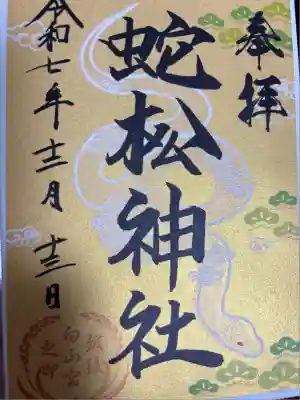 奉拝
蛇松神社
令和七年十二月十三日
白山宮
之印